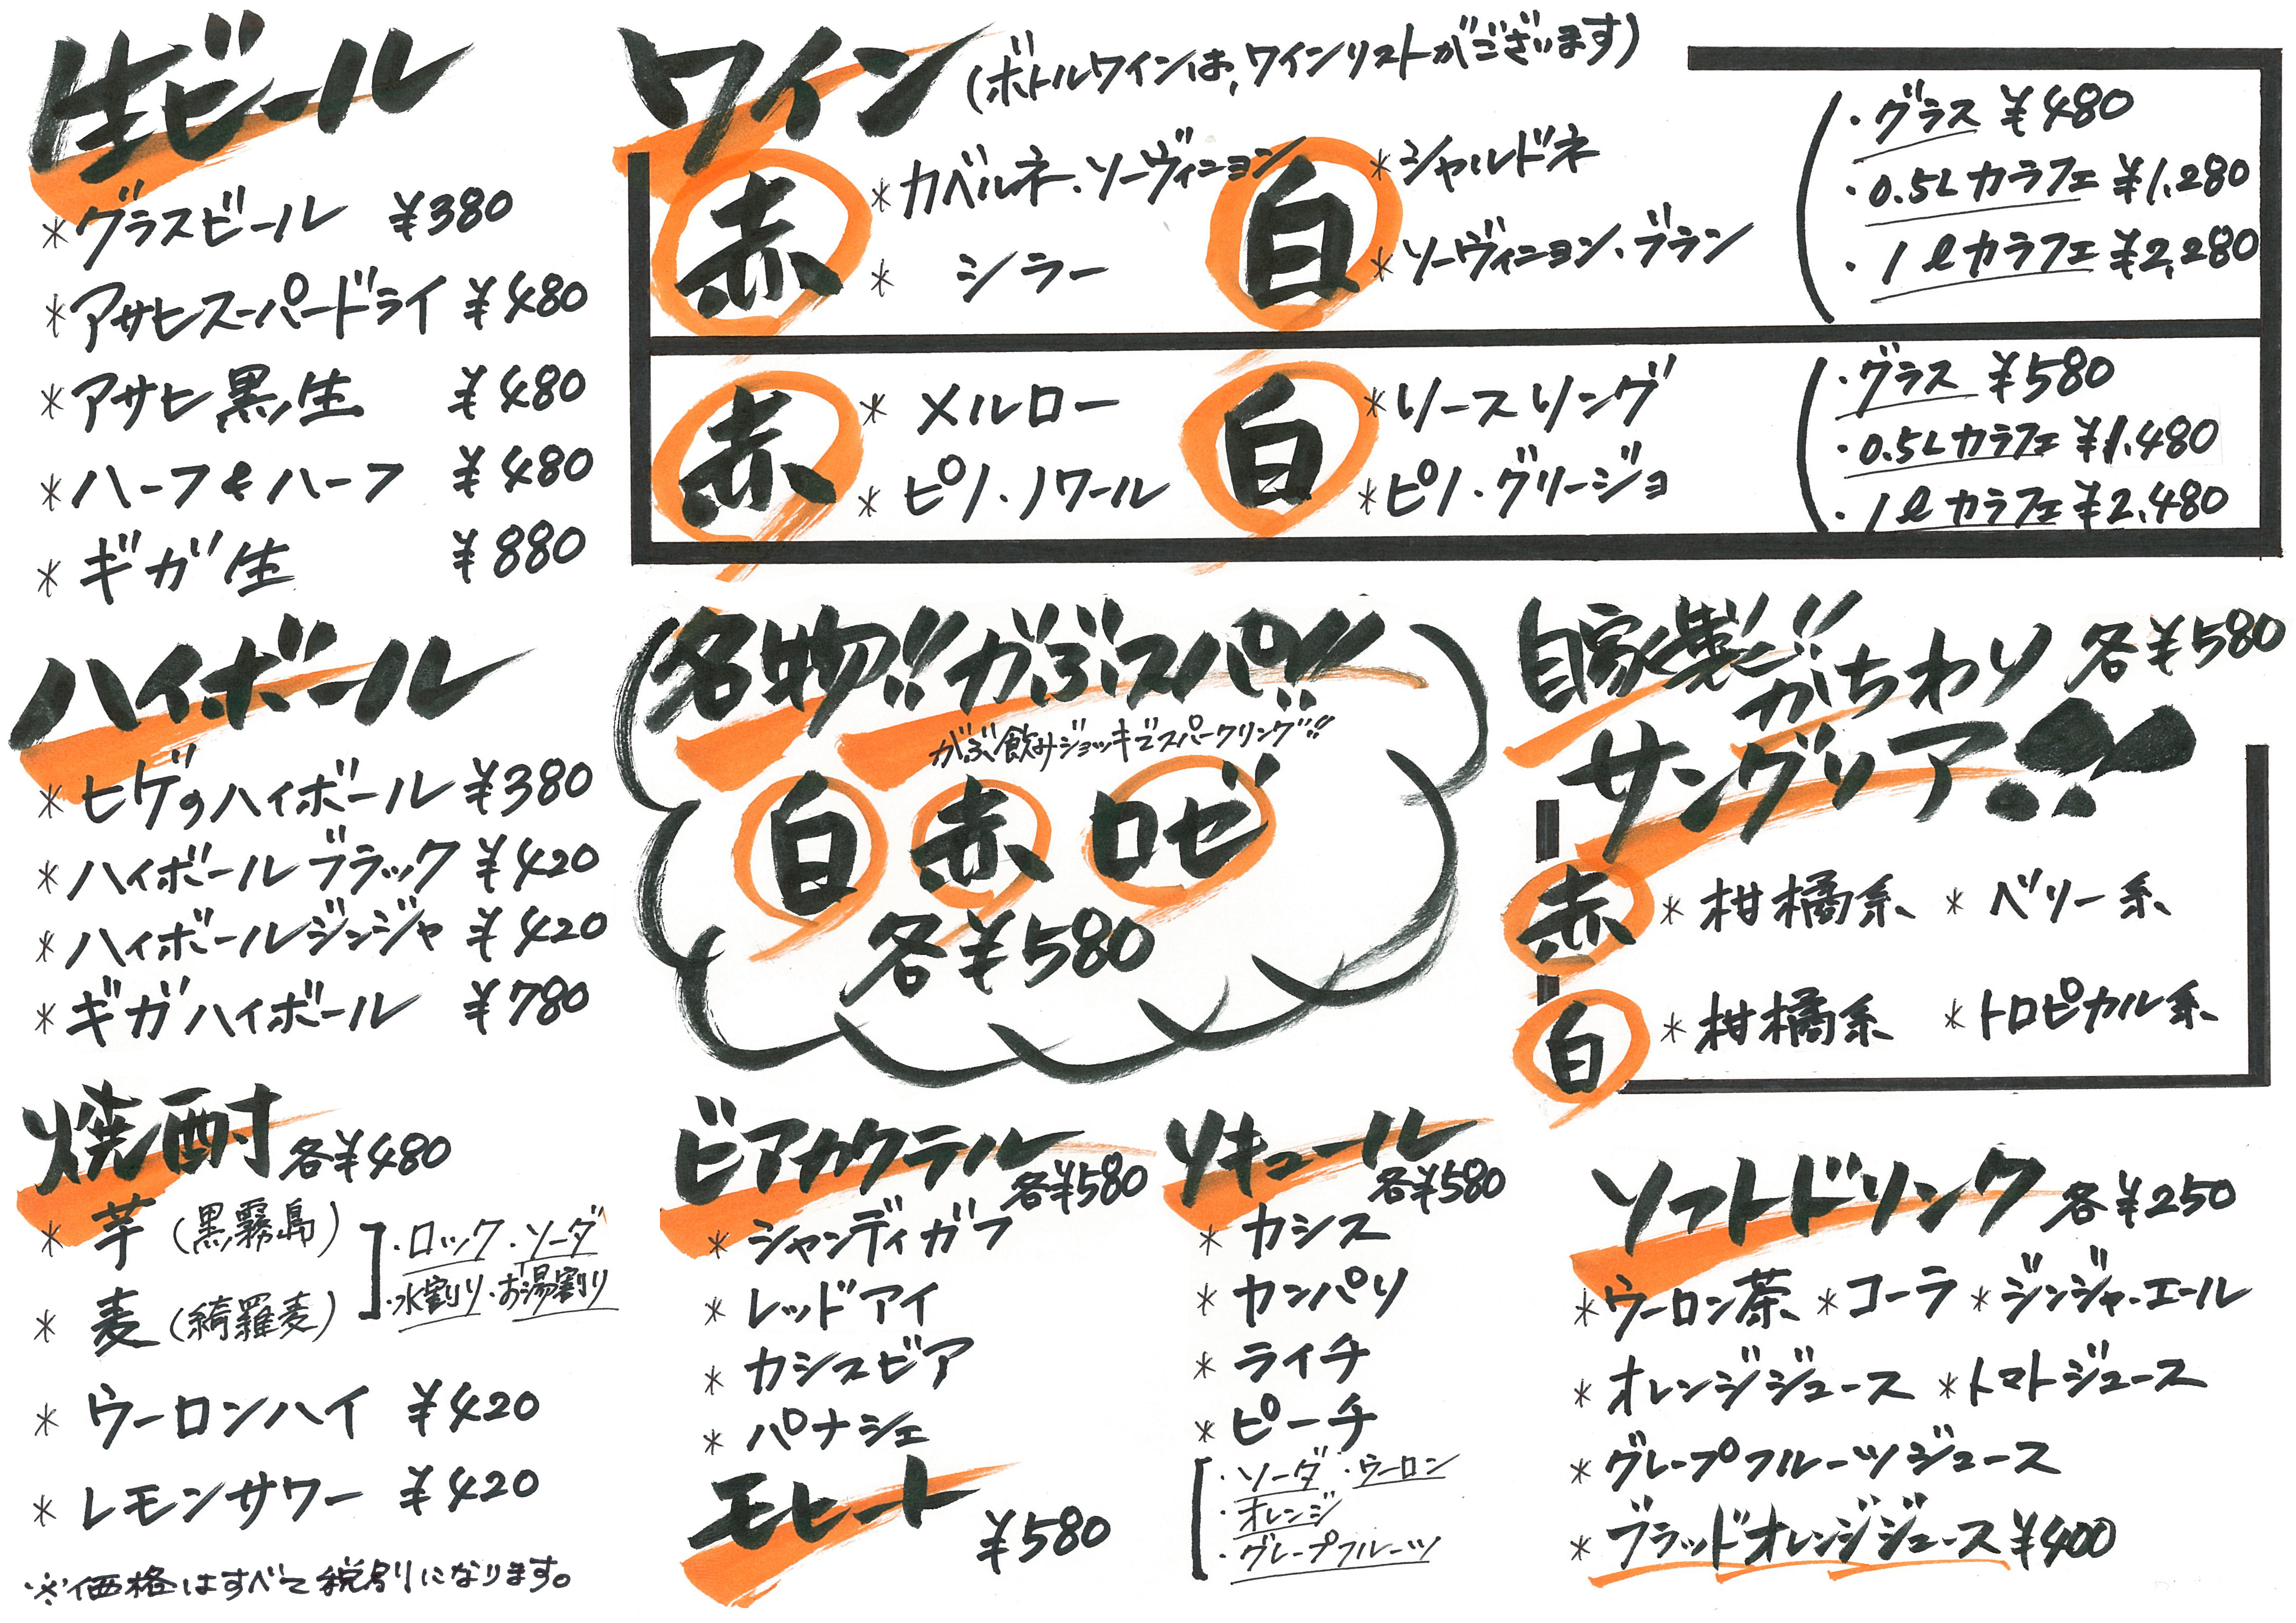 生ビール
*グラスビール ¥380
*アサヒスーパードライ ¥480
*アサヒ黒生 ¥480
*ハーフ&ハーフ ¥480
*ギガ生 ¥880
ハイボール
*ヒゲのハイボール ¥380
*ハイボールブラック ¥420
*ハイボールジンジャ ¥420
*ギガハイボール ¥780
焼酎 各¥480
*芋(黒霧島)
*麦(綺羅麦)
・ロック・ソーダ
・水割り・お湯割り
*ウーロンハイ ¥420
*レモンサワー ¥420
※価格はすべて税別になります。
ワイン(ボトルワインは、ワインリストがございます)
赤 *カベルネ・ソーヴィニヨン
*シラー
白 *シャルドネ
*ソーヴィニヨン・ブラン
・グラス ¥480
・0.5Lカラフェ ¥1,280
・1ℓカラフェ ¥2,280
赤 *メルロー
*ピノ・ノワール
白 *リースリング
*ピノ・グリージョ
・グラス ¥580
・0.5Lカラフェ ¥1,480
・1ℓカラフェ ¥2,480
名物!!がぶスパ!!
がぶ飲みジョッキでスパークリング!!
白 赤 ロゼ
各¥580
自家製!!
がちわり 各¥580
サングリア!!
赤 *柑橘系 *ベリー系
白 *柑橘系 *トロピカル系
ビアカクテル
各¥580
*シャンディガフ
*レッドアイ
*カシスビア
*パナシェ
モヒート ¥580
リキュール
各¥580
*カシス
*カンパリ
*ライチ
*ピーチ
・ソーダ・ウーロン
・オレンジ
・グレープフルーツ
ソフトドリンク 各¥250
*ウーロン茶 *コーラ *ジンジャーエール
*オレンジジュース *トマトジュース
*グレープフルーツジュース
*ブラッドオレンジジュース ¥400